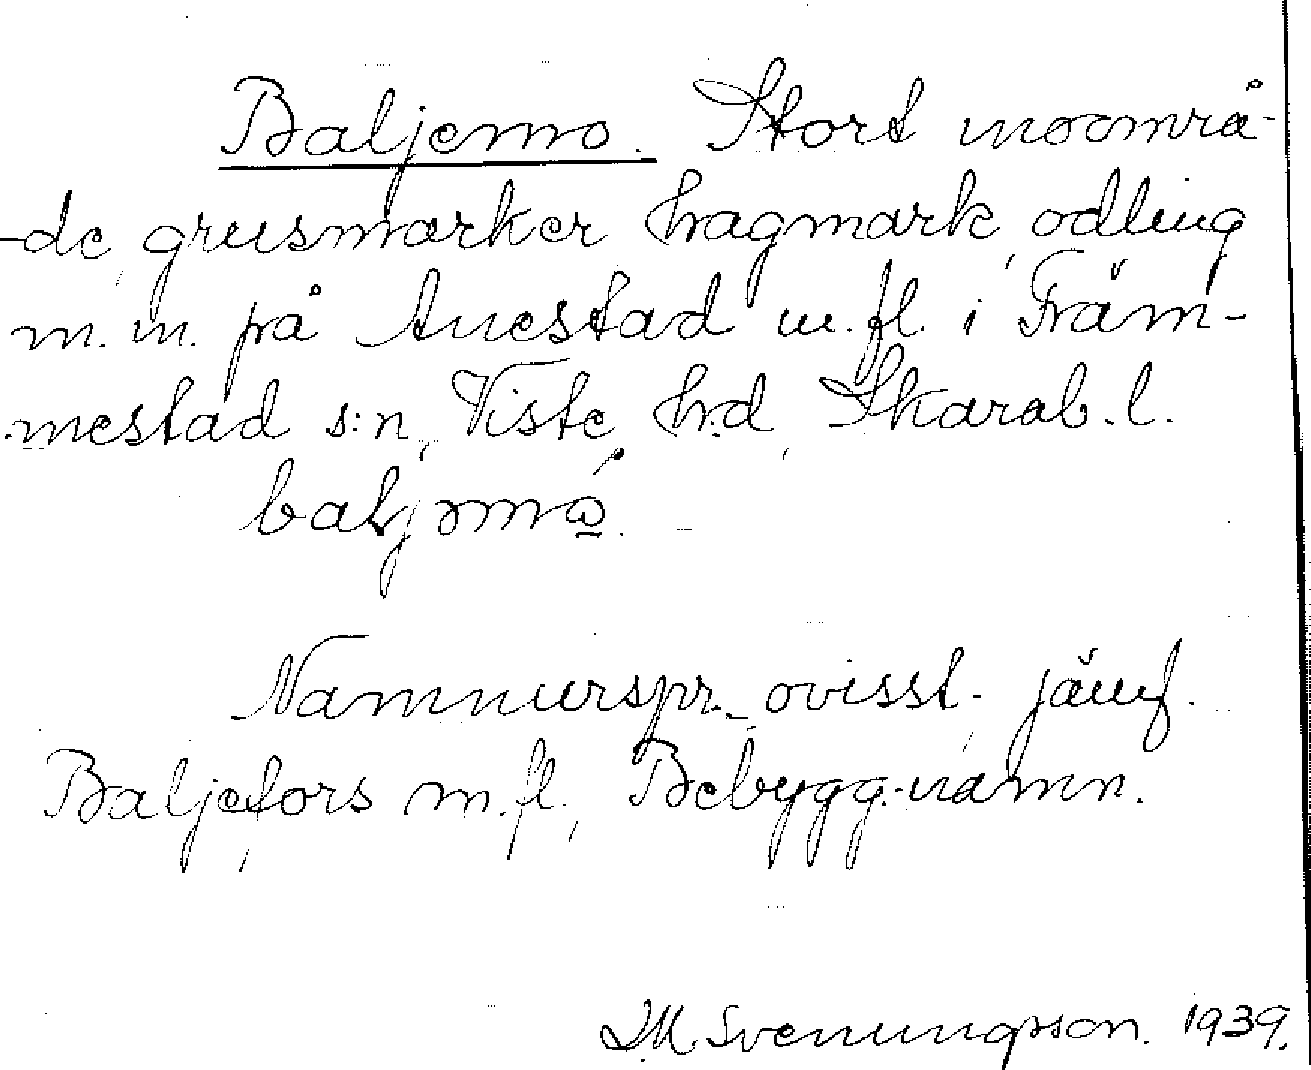 Baljemo. Stort moområ-
de, grusmarker hagmark, odling
m.m. på Anestad m.fl. i Främ-
mestad s:n, Viste hd, Skarab.l.
Namnurspr. ovisst, jämf.
Baljefors m.fl., Bebygg.namn.
Svenungsson. 1939.